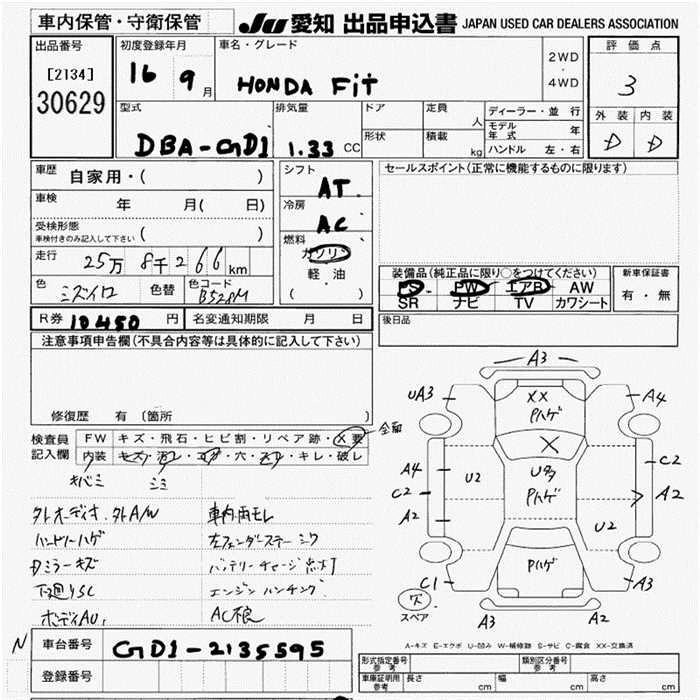 車内保管・守衛保管
JU 愛知 出品申込書 JAPAN USED CAR DEALERS ASSOCIATION
出品番号
[2134]
30629
初度登録年月
16 9月
車名・グレード
HONDA FiT
2WD
・
4WD
評価点
3
外装 内装
D D
型式
DBA-GD1
排気量
1.33 CC
ドア
形状
定員
人
積載
kg
ディーラー・並行
モデル年式 年
ハンドル 左・右
車歴
自家用・( )
車検
年 月( 日)
受検形態
車検付きのみ記入して下さい ( )
走行
25万 8千 266 km
色
ミズイロ
色替
色コード
B528M
シフト
AT
冷房
AC
燃料
ガソリン
軽油
( )
セールスポイント(正常に機能するものに限ります)
装備品(純正品に限り○をつけてください)
PS PW エアB AW
SR ナビ TV カワシート
新車保証書
有・無
後日品
R券 10450 円
名変通知期限 月 日
注意事項申告欄(不具合内容等は具体的に記入して下さい)
修復歴 有 〔箇所 〕
検査員
記入欄
FW キズ・飛石・ヒビ割・リペア跡・X要
内装 キズ・汚レ・コゲ・穴・スレ・キレ・破レ
キバミ シミ
外オーディオ、外A/W
ハンドルハゲ
Dミラーキズ
下廻りSC
ボディAU,
車内雨モレ
左フェンダーステーシワ
バッテリーチャージ点灯
エンジンハンチング
AC不良
A3
UA3
XX
Pハゲ
A4
X
A4
U2
U多
Pハゲ
C2
C2
A2
A2
U2
Pハゲ
C1
A3
欠
スペア
A3
A2
A-キズ E-エクボ U-凹み W-補修跡 S-サビ C-腐食 XX-交換済
N
車台番号
GD1-2135595
登録番号
形式指定番号
参考
類別区分番号
参考
車庫証明用
参考
長さ cm
幅 cm
高さ cm